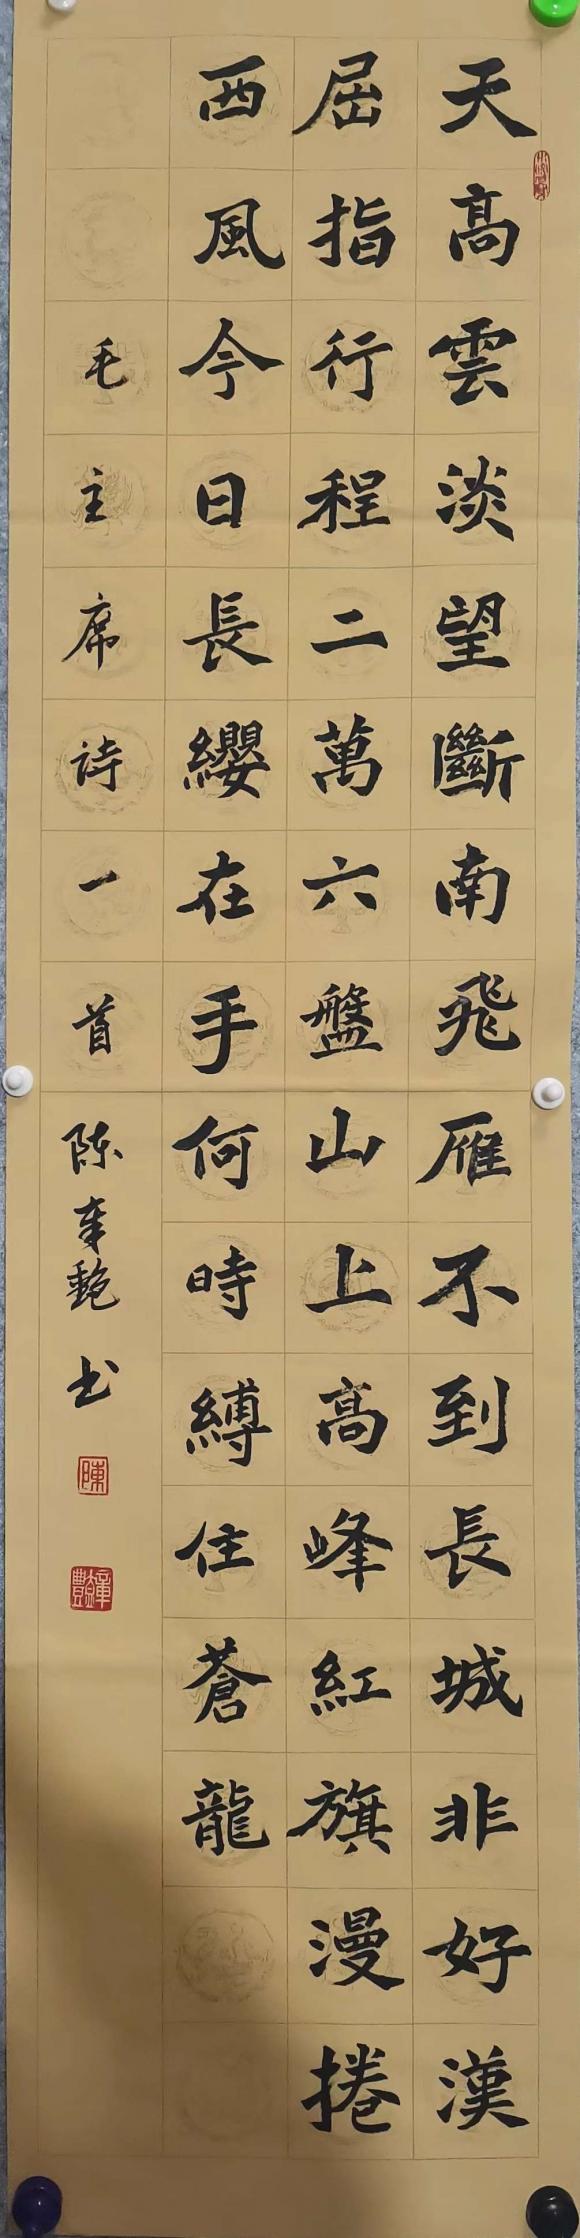 天髙雲淡望斷南飛雁不到長城非好漢
屈指行程二萬六盤山上高峰紅旗漫捲
西風今日長纓在手何時縛住蒼龍
毛主席诗一首 陈 书
陳